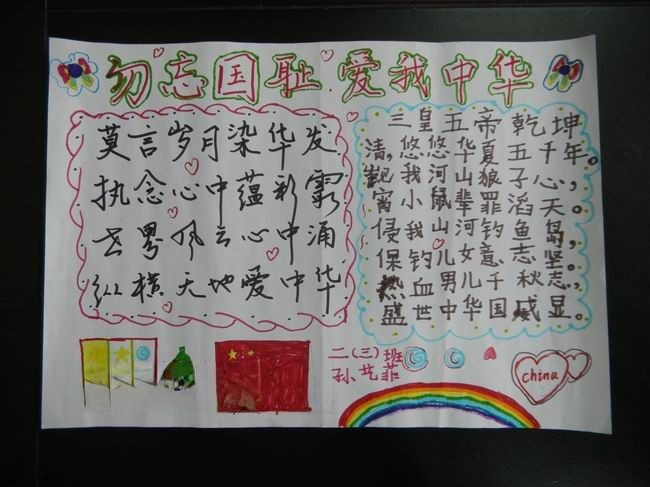 勿忘国耻 爱我中华
莫言岁月染华发
执念心中蕴彩霞
世界风云心中涌
纵横天地爱中华
三皇五帝乾坤
清,悠悠华夏五千年。
觊我河山狼子心,
宵小鼠辈罪滔天。
侵我山河钓鱼岛,
保钓儿女意志坚。
热血男儿千秋志,
盛世中华国威显。
二(三)班
孙 菲
china